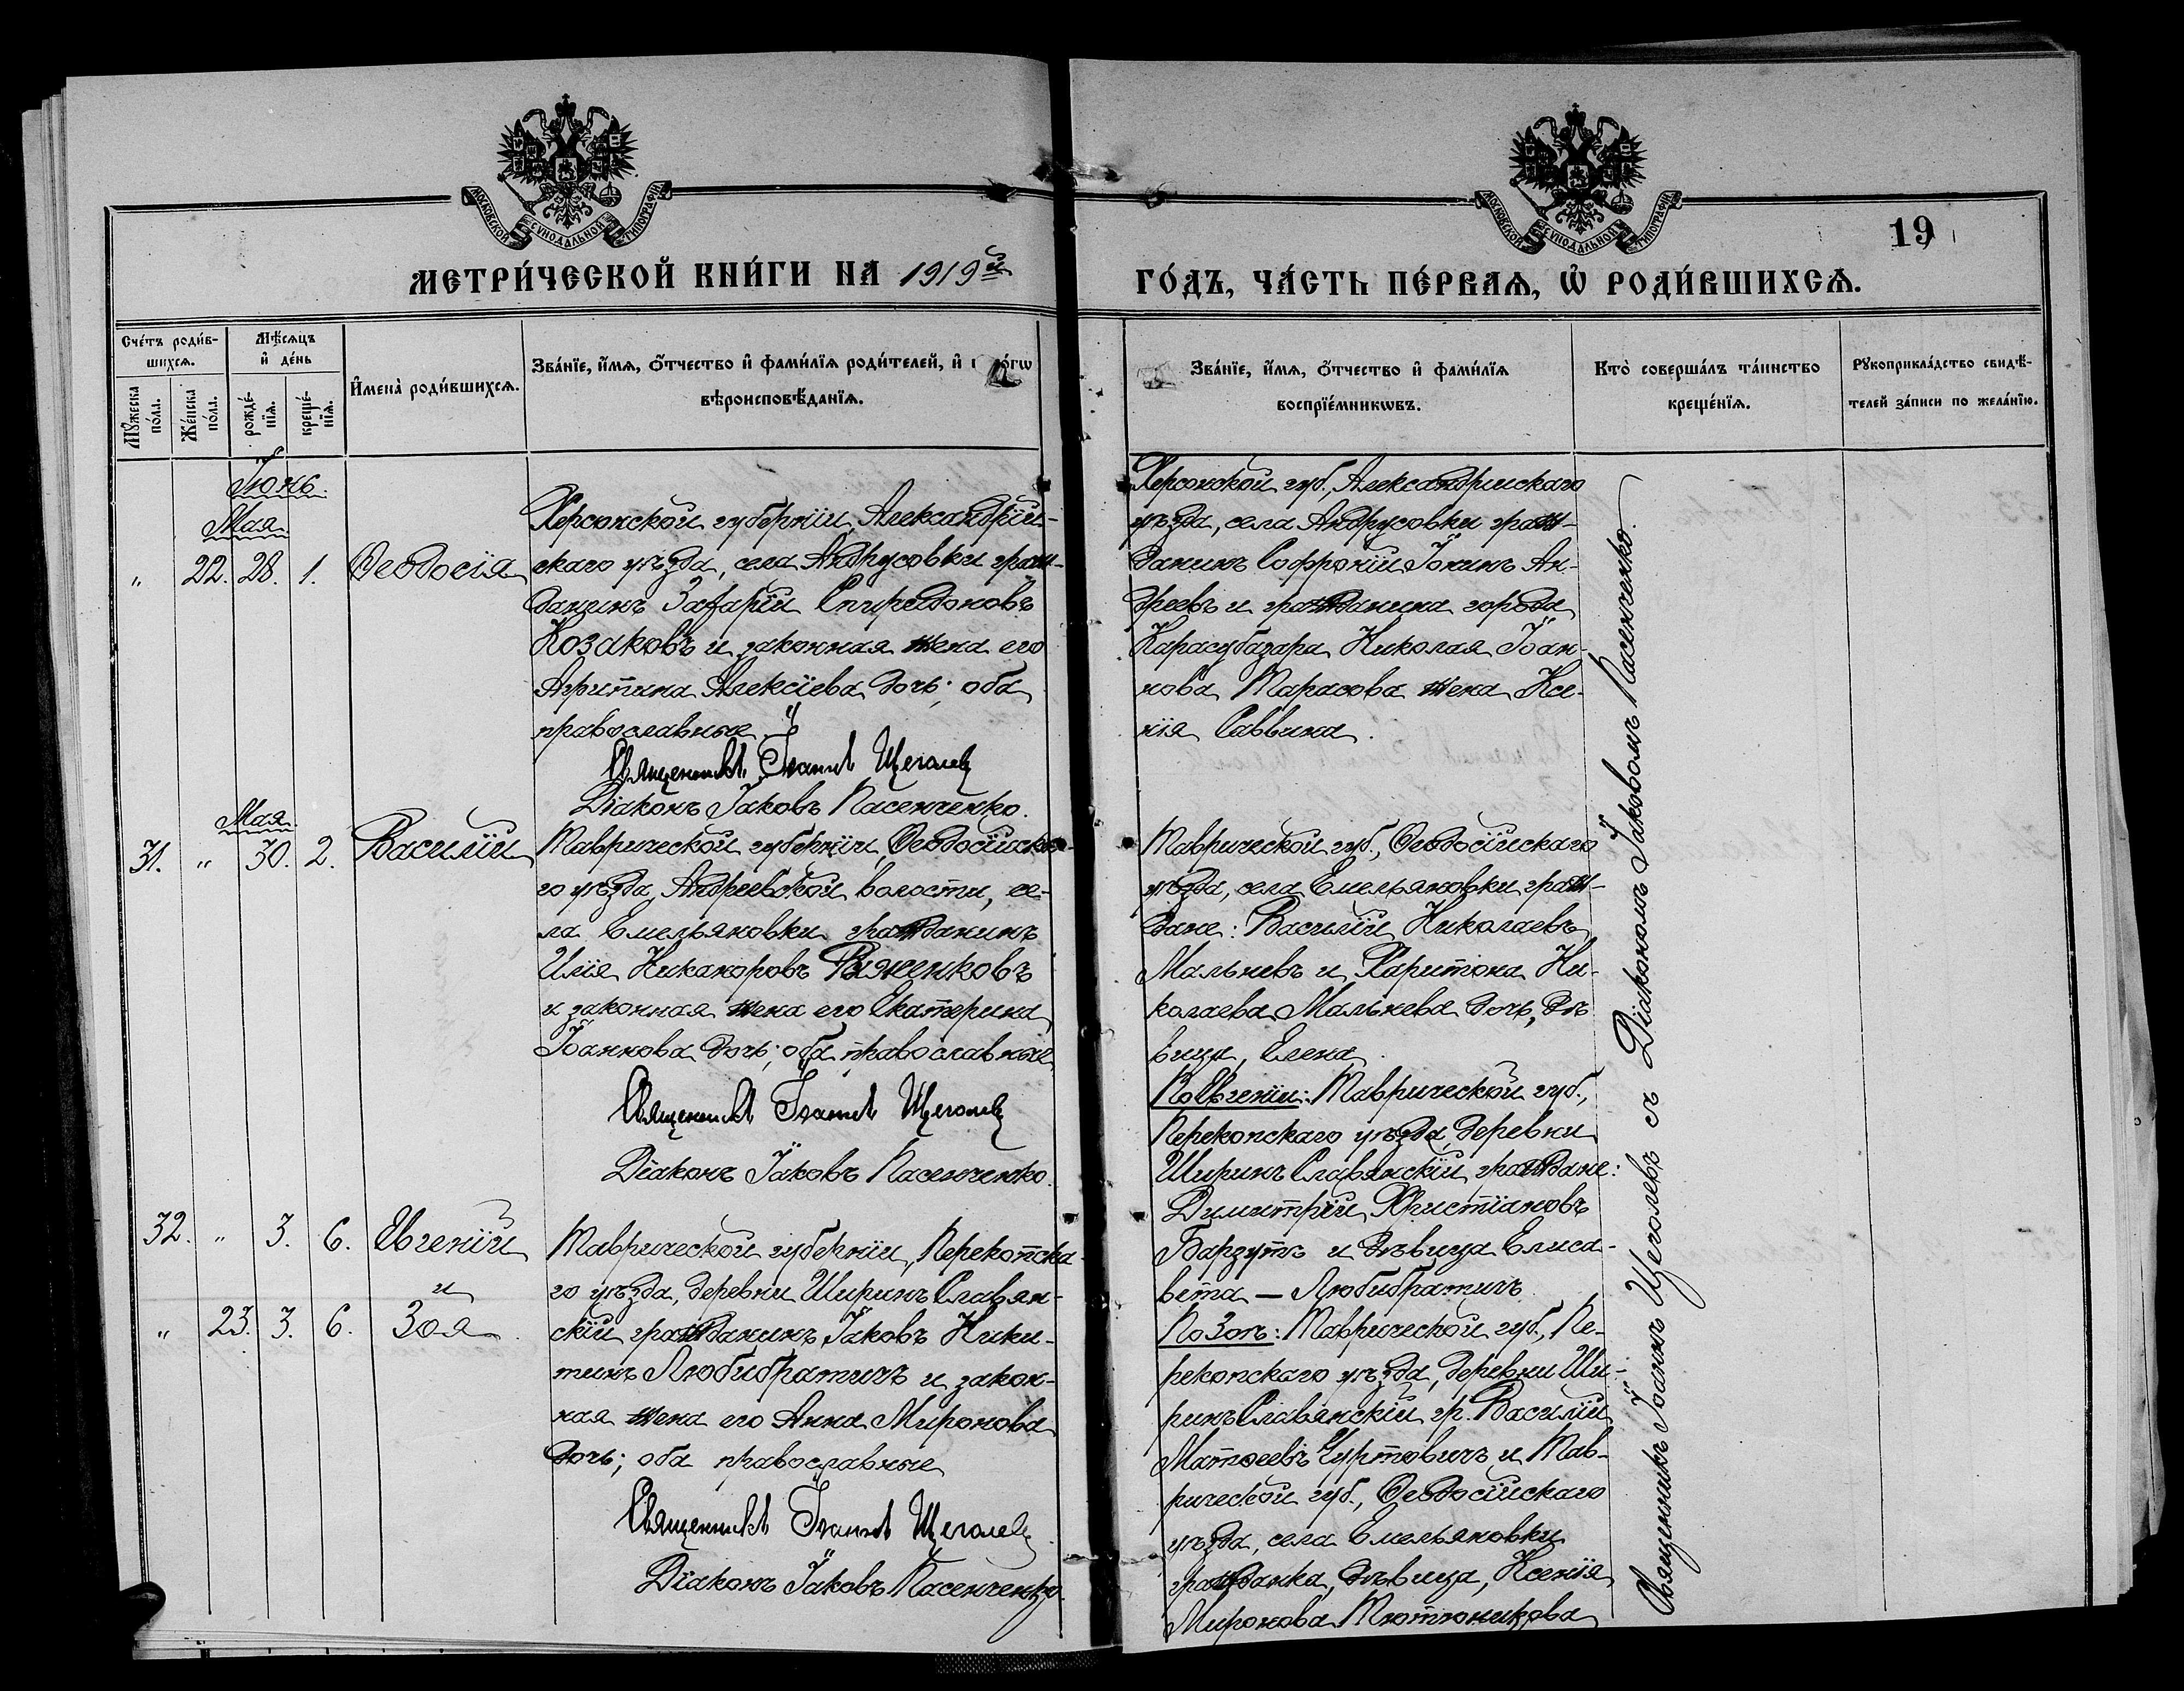 МОСКОВСКОЙ СѴНОДАЛЬНОЙ ТИПОГРАФІИ
МОСКОВСКОЙ СѴНОДАЛЬНОЙ ТИПОГРАФІИ
19
МЕТРИ́ЧЕСКОЙ КНИ́ГИ НА 1919й
ГО́ДЪ, ЧА́СТЬ ПЕ́РВАѦ, Ѡ҆ РОДИ́ВШИХСѦ.
Сче́тъ роди́в-
шихсѧ.
Мѣ́сѧцъ
и҆ де́нь
Мꙋ́жеска
по́ла.
Же́нска
по́ла.
рожде́-
нїѧ.
креще́-
нїѧ.
И҆мена̀ роди́вшихсѧ.
Зва́нїе, и҆́мѧ, ѻ҆́тчество и҆ фами́лїѧ роди́телей, и҆
вѣроисповѣ́данїѧ.
Зва́нїе, и҆́мѧ, ѻ҆́тчество и҆ фами́лїѧ
воспрїе́мникѡвъ.
Кто̀ соверша́лъ та́инство
креще́нїѧ.
Рꙋкоприкла́дство свидѣ́-
телей за́писи по жела́нїю.
Іюнь.
Мая
" 22. 28. 1. Ѳеодосія
Херсонской губерніи, Александрій-
скаго уѣзда, села Андрусовки граж-
данинъ Захарій Спиридоновъ
Козаковъ и законная жена его
Агрипина Алексіева дочь; оба
православные.
Священникъ Іоаннъ Щеголев
Діаконъ Іаковъ Пасенченко.
Херсонской губ., Александрійскаго
уѣзда, села Андрусовки граж-
данинъ Софроній Іокинъ Ан-
дреевъ и гражданина города
Карасубазара Николая Іоан-
нова Тарасова жена Ксе-
нія Саввина.
Мая.
31. " 30. 2. Василій
Таврической губерніи, Ѳеодосійска-
го уѣзда, Андреевской волости, се-
ла Емельяновки гражданинъ
Илія Никаноровъ Ряженковъ
и законная жена его Екатерина
Іоаннова дочь; оба православные
Священникъ Іоаннъ Щеголев
Діаконъ Іаковъ Пасенченко.
Таврической губ., Ѳеодосійскаго
уѣзда, села Емельяновки граж-
дане: Василій Николаевъ
Мальневъ и Харитона Ни-
колаева Мальнева дочь, дѣ
вица, Елена.
32. " 3. 6. Евгеній
и
" 23. 3. 6. Зоя
Таврической губерніи, Перекопска-
го уѣзда, деревни Ширинъ Славян-
скій гражданинъ Іаковъ Ники-
тинъ Любибратичъ и закон-
ная жена его Анна Миронова
дочь; оба православные
Священникъ Іоаннъ Щеголев
Діаконъ Іаковъ Пасенченко
По Евгеніи: Таврической губ.,
Перекопскаго уѣзда, деревни
Ширинъ Славянскій, граждане:
Димитрій Христіановъ
Барзутъ и дѣвица Елиса-
вета — Любибратичъ
По Зоѣ: Таврической губ., Пе-
рекопскаго уѣзда, деревни Ши-
ринъ Славянскій гр. Василій
Матѳеевъ Чуртовичъ и Тав-
рической губ., Ѳеодосійскаго
уѣзда, села Емельяновки
гражданка, дѣвица, Ксенія
Миронова Тютюникова
Священникъ Іоаннъ Щеголевъ съ Діакономъ Іаковомъ Пасенченко.